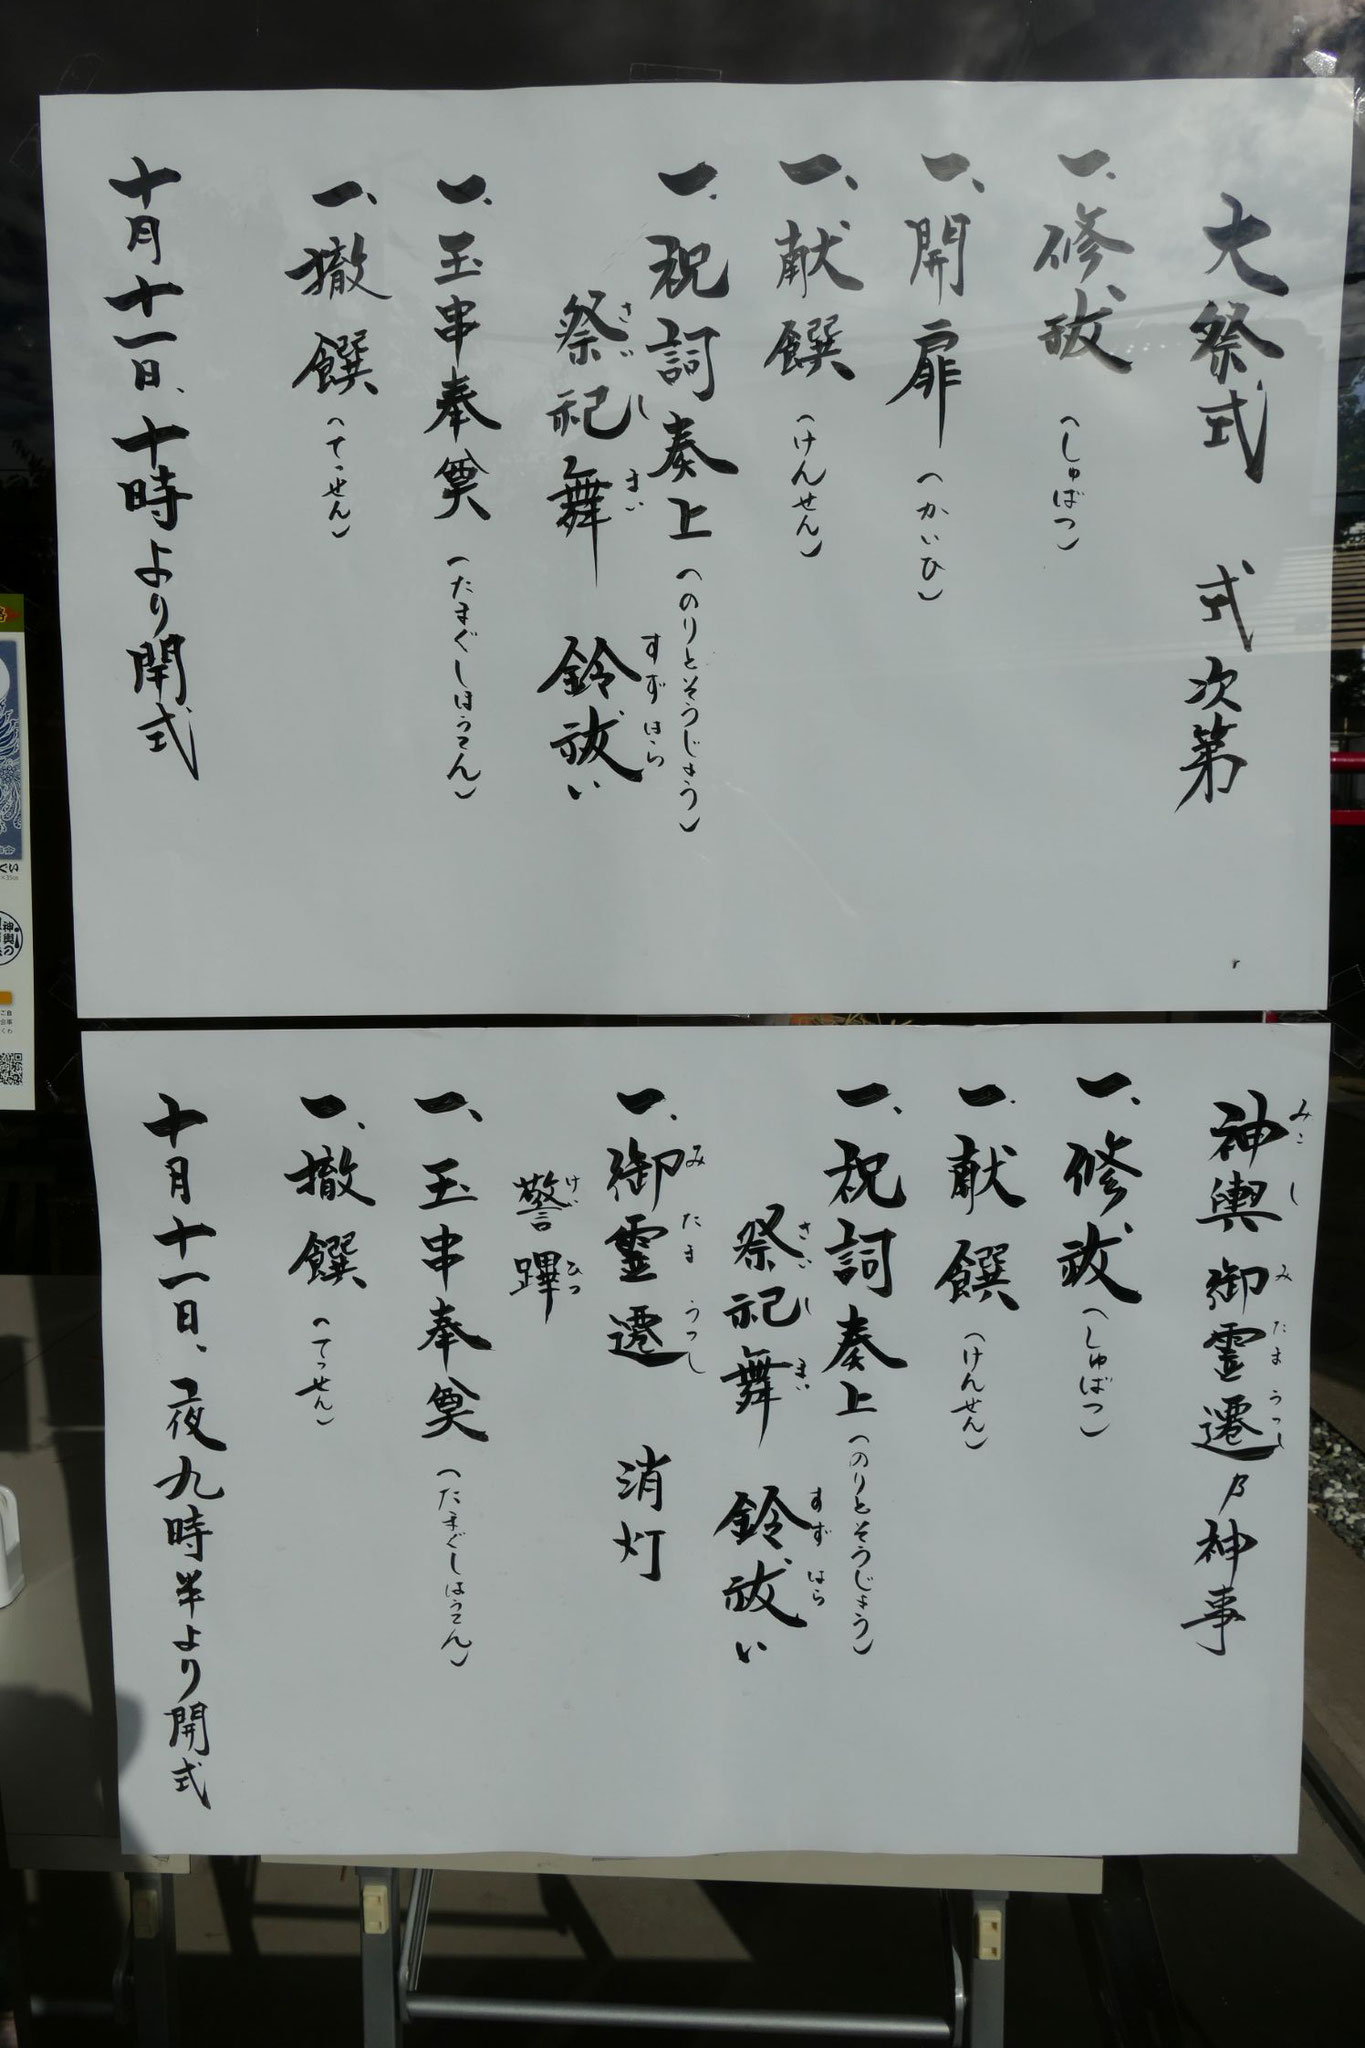 大祭式 式次第
一、修祓(しゅばつ)
一、開扉(かいひ)
一、献饌(けんせん)
一、祝詞奏上(のりとそうじょう)
祭祀舞 鈴祓い
さいしまい すずはら
一、玉串奉奠(たまぐしほうてん)
一、撤饌(てっせん)
十月十一日、十時より開式
神輿御霊遷乃神事
みこし みたまうつし
一、修祓(しゅばつ)
一、献饌(けんせん)
一、祝詞奏上(のりとそうじょう)
祭祀舞 鈴祓い
さいしまい すずはら
一、御霊遷 消灯
みたまうつし
警蹕
けいひつ
一、玉串奉奠(たまぐしほうてん)
一、撤饌(てっせん)
十月十一日、夜九時半より開式